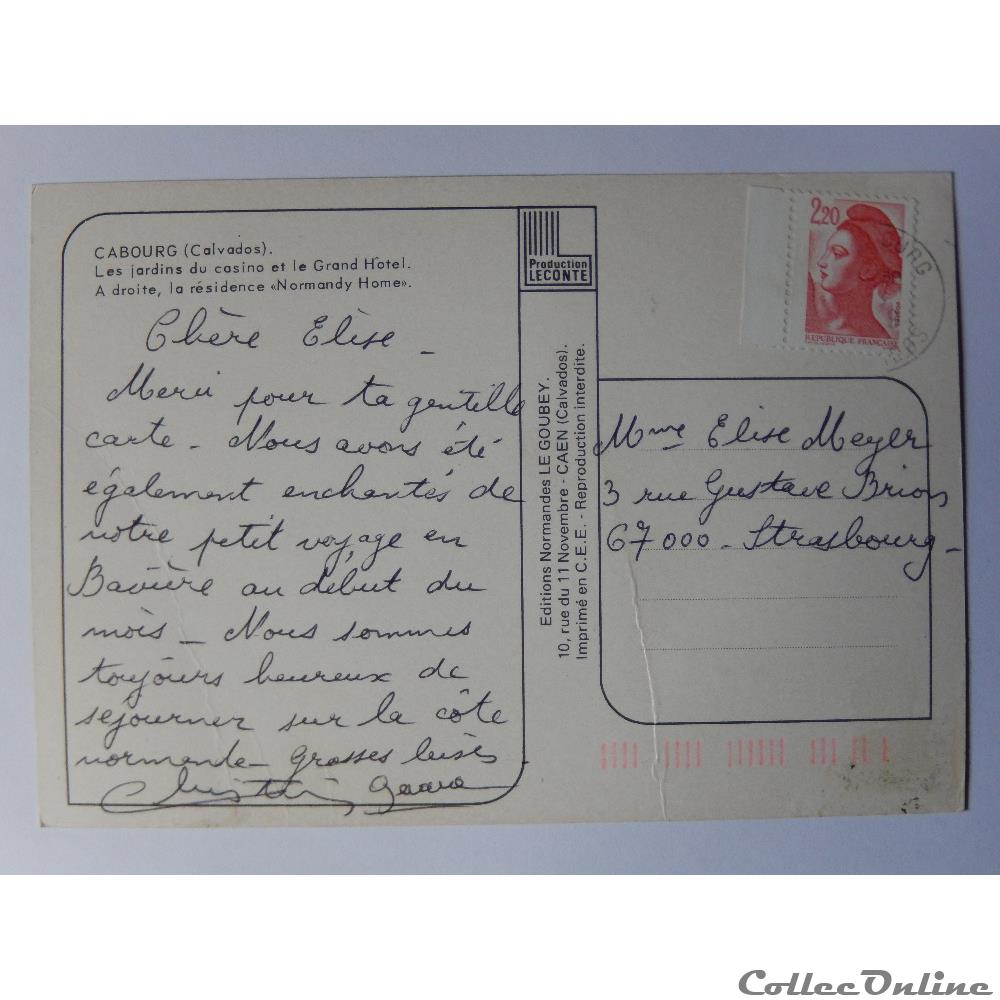 CABOURG (Calvados).
Les jardins du casino et le Grand Hôtel.
A droite, la résidence «Normandy Home».
Chère Elise -
Merci pour ta gentille
carte - Nous avons été
également enchantés de
notre petit voyage en
Bavière au début du
mois - Nous sommes
toujours heureux de
séjourner sur la côte
normande - Grosses bises
Production
LECONTE
Editions Normandes LE GOUBEY.
10, rue du 11 Novembre - CAEN (Calvados).
Imprimé en C.E.E. - Reproduction interdite.
2,20
REPUBLIQUE FRANÇAISE
Mme Elise Meyer
3 rue Gustave Brion
67000 - Strasbourg -
CollecOnline